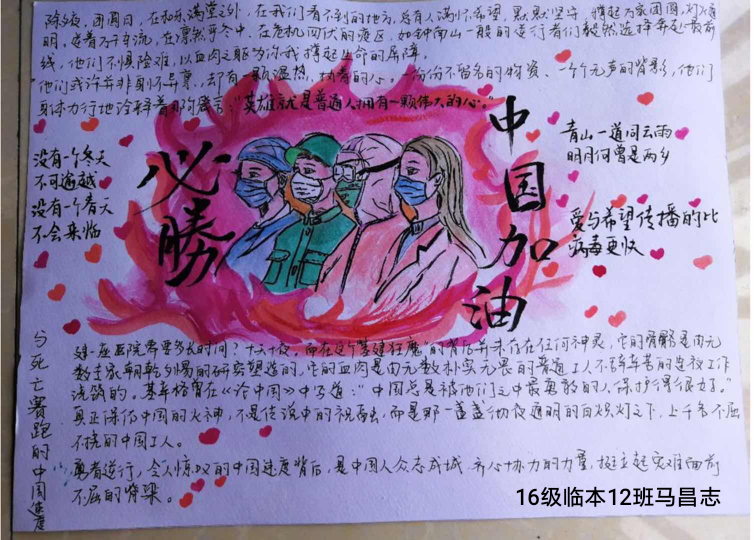 除夕夜,团圆日,在和乐满堂之外,在我们看不到的地方,总有人满怀希望,默默坚守,撑起万家团圆,灯火通
明,逆着万千车流,在凛然寒冬中,在危机四伏的疫区,如钟南山一般的逆行者们毅然选择奔赴最前
线,他们不惧险难,以血肉之躯为你我撑起生命的屏障。
他们或许并非别怀异禀,却有一颗温热、执着的心。一份份不留名的物资、一个个无声的背影,他们
身体力行地诠释着那句箴言:“英雄就是普通人拥有一颗伟大的心。”
没有一个冬天
不可逾越
没有一个春天
不会来临
必勝
中国加油
青山一道同云雨
明月何曾是两乡
爱与希望传播的比
病毒更快
与死亡赛跑的中国速度
建一座医院需要多长时间?十天十夜,而在这个“基建狂魔”的背后并未存在任何神灵,它的骨骼是由无
数专家朝乾夕惕的研究塑造的,它的血肉是由无数朴实无畏的普通工人不辞辛苦的连夜工作
浇筑的。基辛格曾在《论中国》中写道:“中国总是被他们之中最勇敢的人保护得很好。”
真正保佑中国的火神,不是传说中的祝融,而是那一盏盏彻夜通明的白炽灯之下,上千名不屈
不挠的中国工人。
勇者逆行,令人惊叹的中国速度背后,是中国人众志成城、齐心协力的力量,挺立起灾难面前
不屈的脊梁。
16级临本12班马昌志